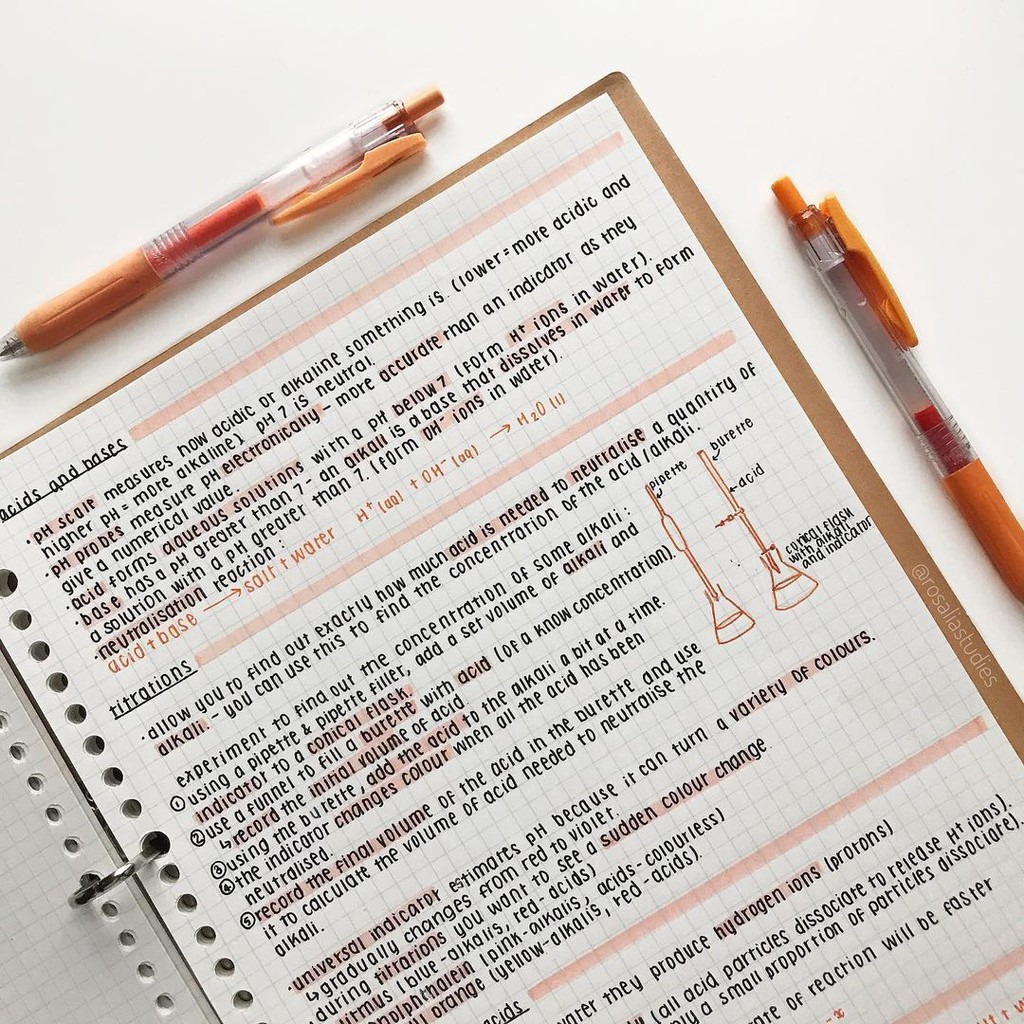 acids and bases
· pH scale measures how acidic or alkaline something is. (lower = more acidic and
higher pH = more alkaline). pH 7 is neutral.
· pH probes measure pH electronically - more accurate than an indicator as they
give a numerical value.
· acid forms aqueous solutions with a pH below 7 (form H⁺ ions in water).
· base has a pH greater than 7 - an alkali is a base that dissolves in water to form
a solution with a pH greater than 7. (form OH⁻ ions in water).
· neutralisation reaction:
acid + base → salt + water H⁺(aq) + OH⁻(aq) → H₂O (l)
titrations
· allow you to find out exactly how much acid is needed to neutralise a quantity of
alkali - you can use this to find the concentration of the acid/alkali.
experiment to find out the concentration of some alkali:
① using a pipette & pipette filler, add a set volume of alkali and
indicator to a conical flask.
② use a funnel to fill a burette with acid (of a know concentration).
↳ record the initial volume of acid
③ using the burette, add the acid to the alkali a bit at a time.
④ the indicator changes colour when all the acid has been
neutralised.
⑤ record the final volume of the acid in the burette, and use
it to calculate the volume of acid needed to neutralise the
alkali.
pipette
burette
acid
conical flask
with alkali
and indicator
· universal indicator estimates pH because it can turn a variety of colours.
↳ gradually changes from red to violet.
during titrations you want to see a sudden colour change.
litmus (blue-alkalis, red-acids)
(pink-alkalis, acids-colourless)
orange (yellow-alkalis, red-acids).
acids
water they produce hydrogen ions (protons)
(all acid particles dissociate to release H⁺ ions).
only a small proportion of particles dissociate).
rate of reaction will be faster
@rosaliastudies